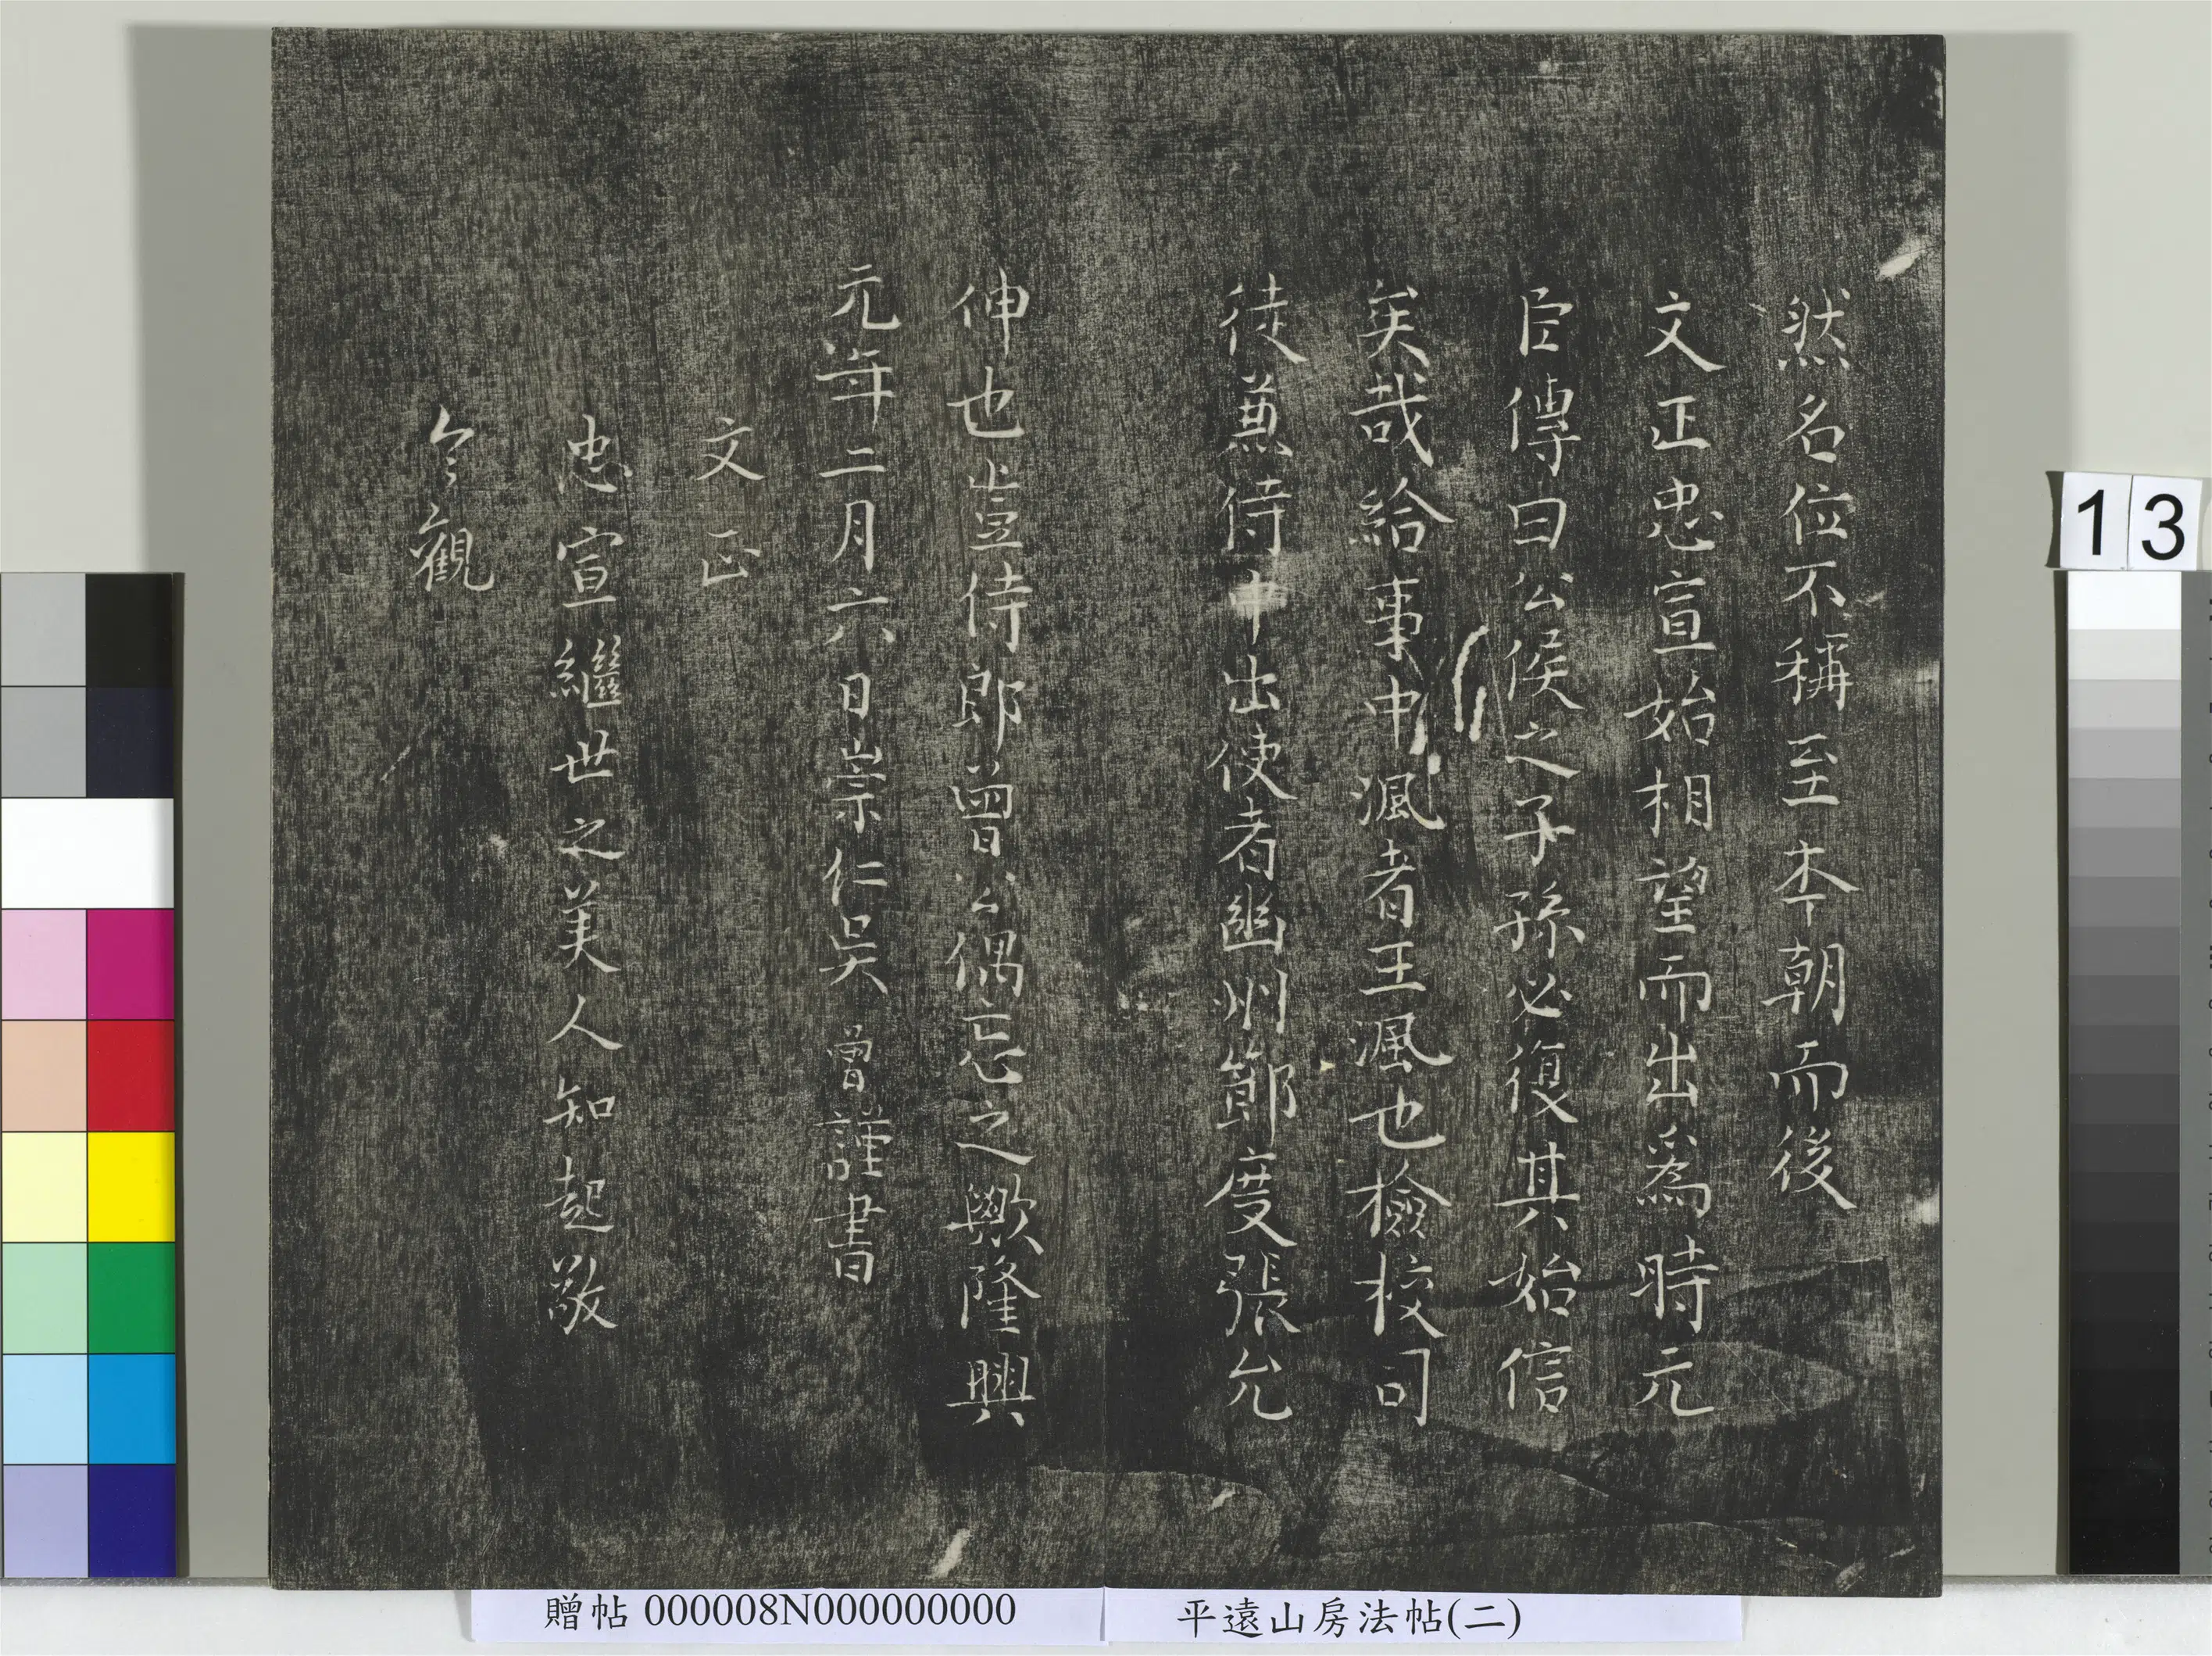 然名位不稱至本朝而後
文正忠宣始相望而出爲時元
臣傳曰公侯之子孫必復其始信
矣哉給事中渢者王渢也檢校司
徒兼侍中出使者幽州節度張允
伸也豈侍郎曾公偶忘之歟隆興
元年二月六日崇仁吳曾謹書
文正
忠宣繼世之美人知起敬
今觀
13
贈帖 000008N000000000
平遠山房法帖(二)